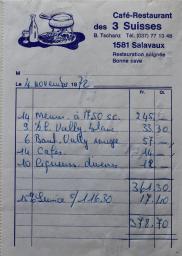 Café-Restaurant
des 3 Suisses
B. Tschanz Tél. (037) 77 13 48
1581 Salavaux
Restauration soignée
Bonne cave
M
Le 4 novembre 1972
Fr. Ct.
14 menus à 17.50 sc. 245.—
9 Vully blanc 33 30
6 Bout. Vully rouge 57.—
14 Cafés 14.—
10 Liqueurs diverses 12.—
361.30
Service s/ 116.30 17.40
378.70